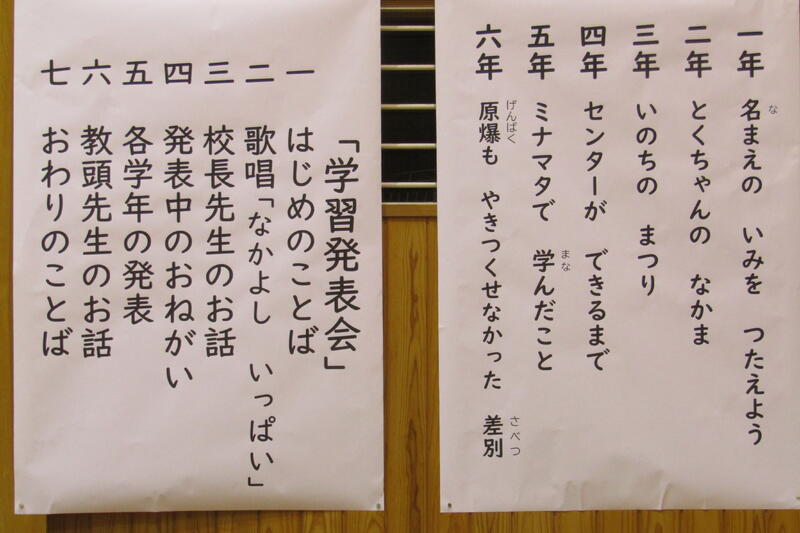 一年　名まえの　いみを　つたえよう
な
二年　とくちゃんの　なかま
三年　いのちの　まつり
四年　センターが　できるまで
五年　ミナマタで　学んだこと
まな
六年　原爆も　やきつくせなかった　差別
げんばく
さべつ
「学習発表会」
一　はじめのことば
二　歌唱「なかよし　いっぱい」
三　校長先生のお話
四　発表中のおねがい
五　各学年の発表
六　教頭先生のお話
七　おわりのことば